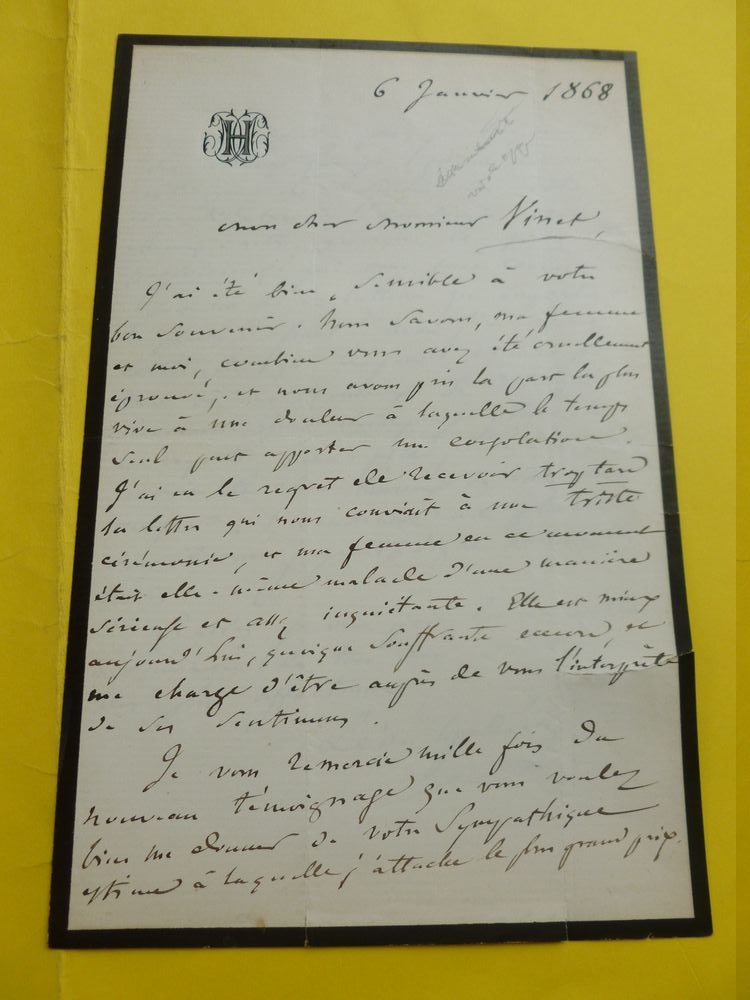 6 Janvier 1868
H
mon cher Monsieur Vinet,
J'ai été bien sensible à votre
bon souvenir. Nous savons, ma femme
et moi, combien vous avez été cruellement
éprouvé, et nous avons pris la part la plus
vive à une douleur à laquelle le temps
seul peut apporter une consolation.
J'ai eu le regret de recevoir trop tard
la lettre qui nous conviait à une triste
cérémonie, et ma femme en ce moment
était elle-même malade d'une manière
sérieuse et assez inquiétante. Elle est mieux
aujourd'hui, quoique souffrante encore, et
me charge d'être auprès de vous l'interprète
de ses sentiments.
Je vous remercie mille fois du
nouveau témoignage que vous voulez
bien me donner de votre sympathique
estime à laquelle j'attache le plus grand prix.